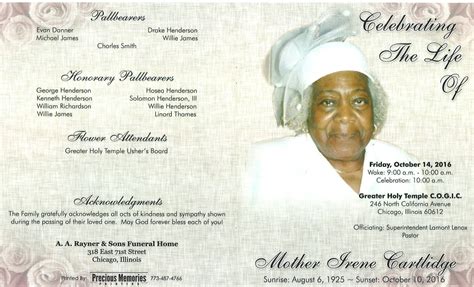 Pallbearers
Evan Danner Drake Henderson
Michael James Willie James
Chorles Smith
Honorary Pallbearers
George Henderson Hosea Henderson
Kenneth Henderson Solomon Henderson, III
William Richardson Willie Henderson
Willie James Linord Thames
Flower Attendants
Greater Holy Temple Usher's Board
Acknowledgments
The Family gratefully acknowledges all acts of kindness and sympathy shown
during the passing of their loved one. May God forever bless each of you!
A. A. Rayner & Sons Funeral Home
318 East 71st Street
Chicago, Illinois
Printed By: Precious Memories PRINTING 773-487-4766
Celebrating
The Life
Of
Friday, October 14, 2016
Wake: 9:00 a.m. - 10:00 a.m.
Celebration: 10:00 a.m.
Greater Holy Temple C.O.G.I.C.
246 North California Avenue
Chicago, Illinois 60612
Officiating: Superintendent Lamont Lenox
Pastor
Mother Irene Cartlidge
Sunrise: August 6, 1925 ~ Sunset: October 10, 2016